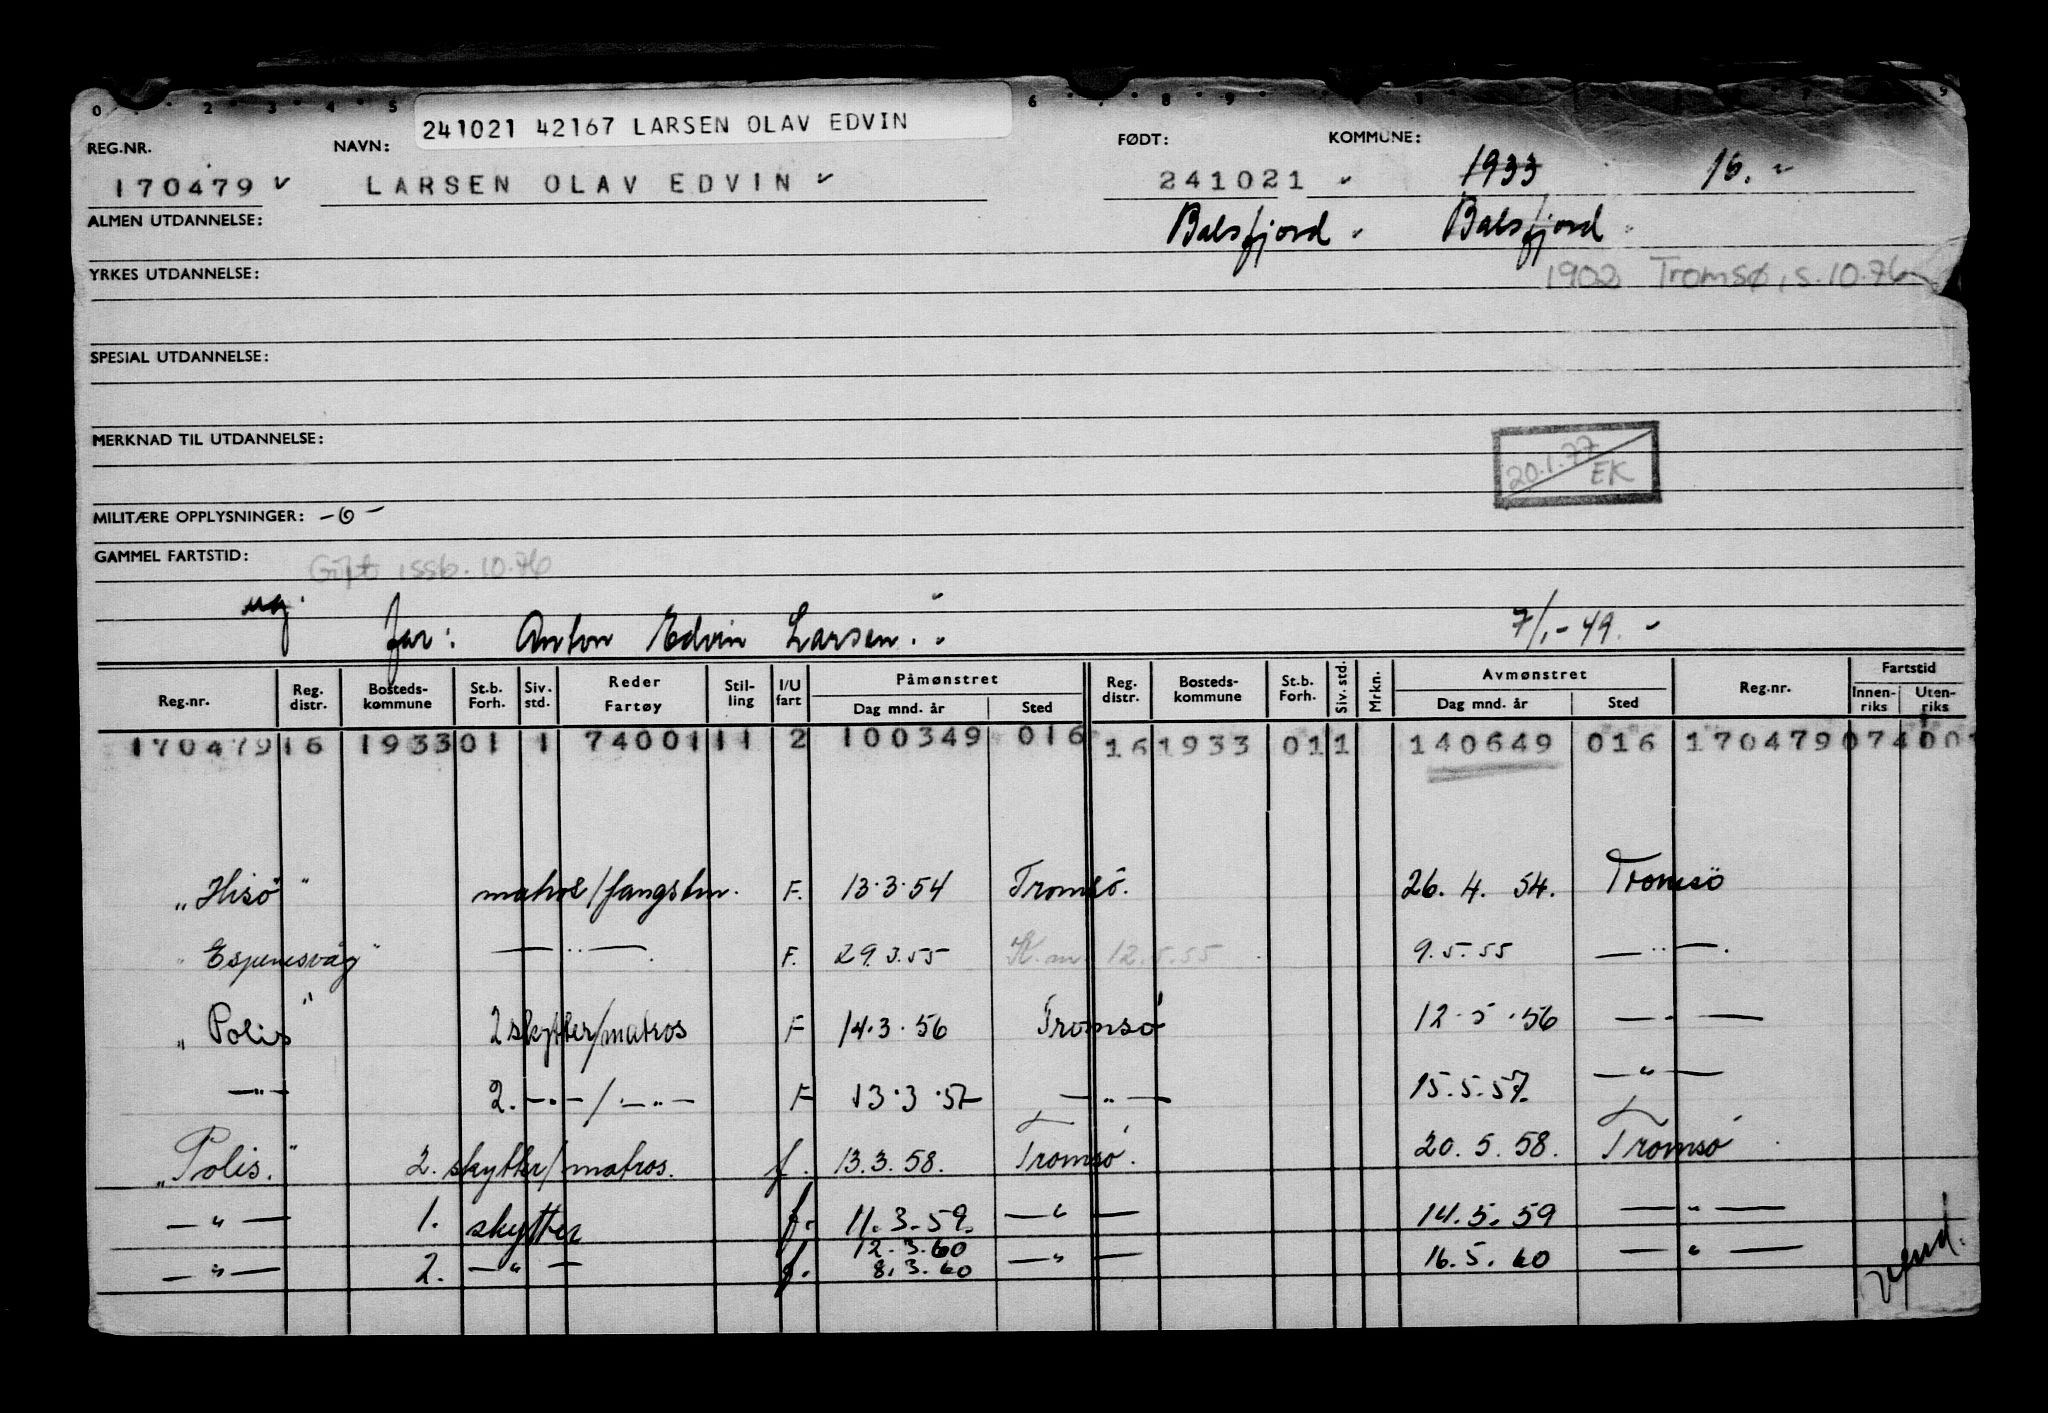 0 2 3 4 5 6 8 9 9
241021 42167 LARSEN OLAV EDVIN
REG.NR. NAVN: FØDT: KOMMUNE:
170479 LARSEN OLAV EDVIN 241021 1933 16.
ALMEN UTDANNELSE: Balsfjord Balsfjord
YRKES UTDANNELSE: 1902 Tromsø, s. 10.76
SPESIAL UTDANNELSE:
MERKNAD TIL UTDANNELSE:
20.1.77 EK
MILITÆRE OPPLYSNINGER: -0-
GAMMEL FARTSTID:
Gift issb. 10.76
ug. far: Anton Edvin Larsen. 7/1-49.
Reg.nr. Reg. distr. Bosteds-kommune St.b. Forh. Siv. std. Reder Fartøy Stil-ling I/U fart Påmønstret Dag mnd. år Sted Reg. distr. Bosteds-kommune St.b. Forh. Siv. std. Mrkn. Avmønstret Dag mnd. år Sted Reg.nr. Fartstid Innen-riks Uten-riks
170479 16 1933 01 1 74001 11 2 100349 016 16 1933 01 1 140649 016 170479 074001
"Hisø" matros/fangstm. F. 13.3.54 Tromsø. 26.4.54. Tromsø
"Espenesvåg" —"— F. 29.3.55 K.m. 12.5.55 9.5.55 —"—.
"Polis" 2 skytter/matros F 14.3.56 Tromsø 12.5.56 —"—
—"— 2. —"—/—"— F 13.3.57 —"— 15.5.57. —"—
"Polis." 2. skytter/matros. f. 13.3.58. Tromsø. 20.5.58. Tromsø
—"— 1. skytter f. 11.3.59. —"— 14.5.59 —"—
12.3.60
—"— 2. —"— f. 8.3.60 —"— 16.5.60 —"—